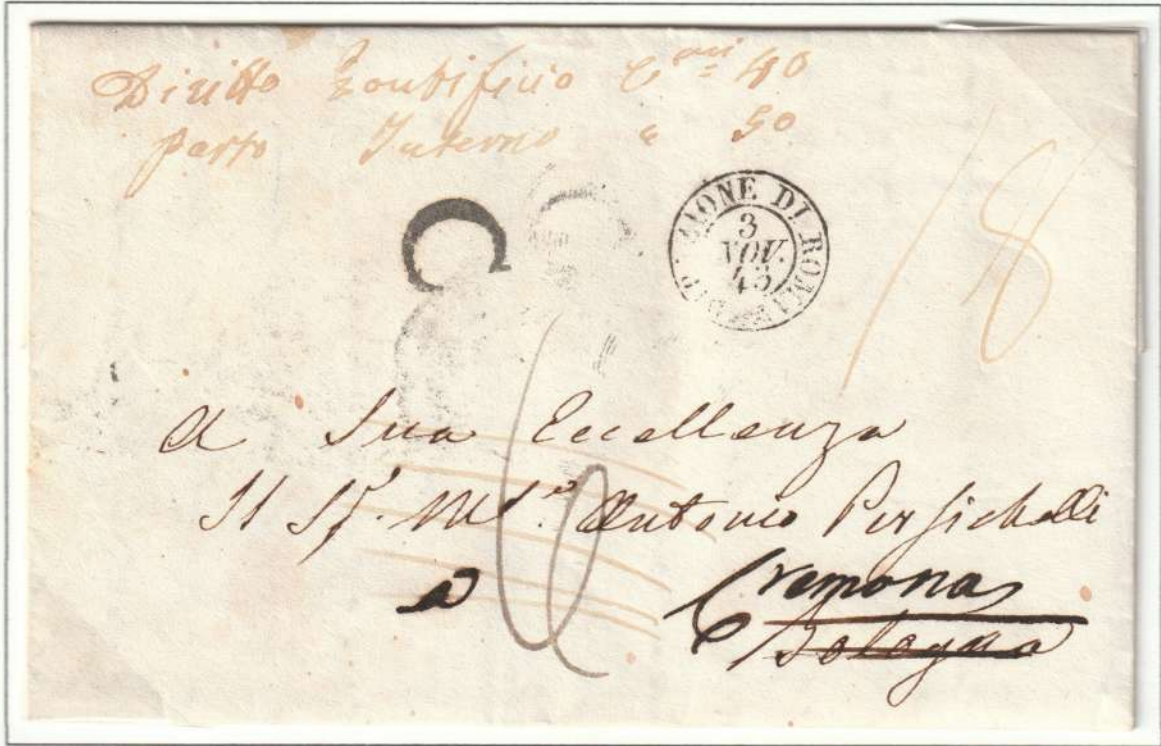 Diritto Pontificio C.mi 40
porto Interno " 50
DIREZIONE DI ROMA
3
NOV.
43
18
C
6
A Sua Eccellenza
Il Sig. M.se Antonio Persichelli
a Cremona
Bologna